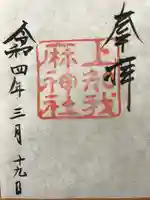 奉拝
上
麻神社
令和四年三月十九日